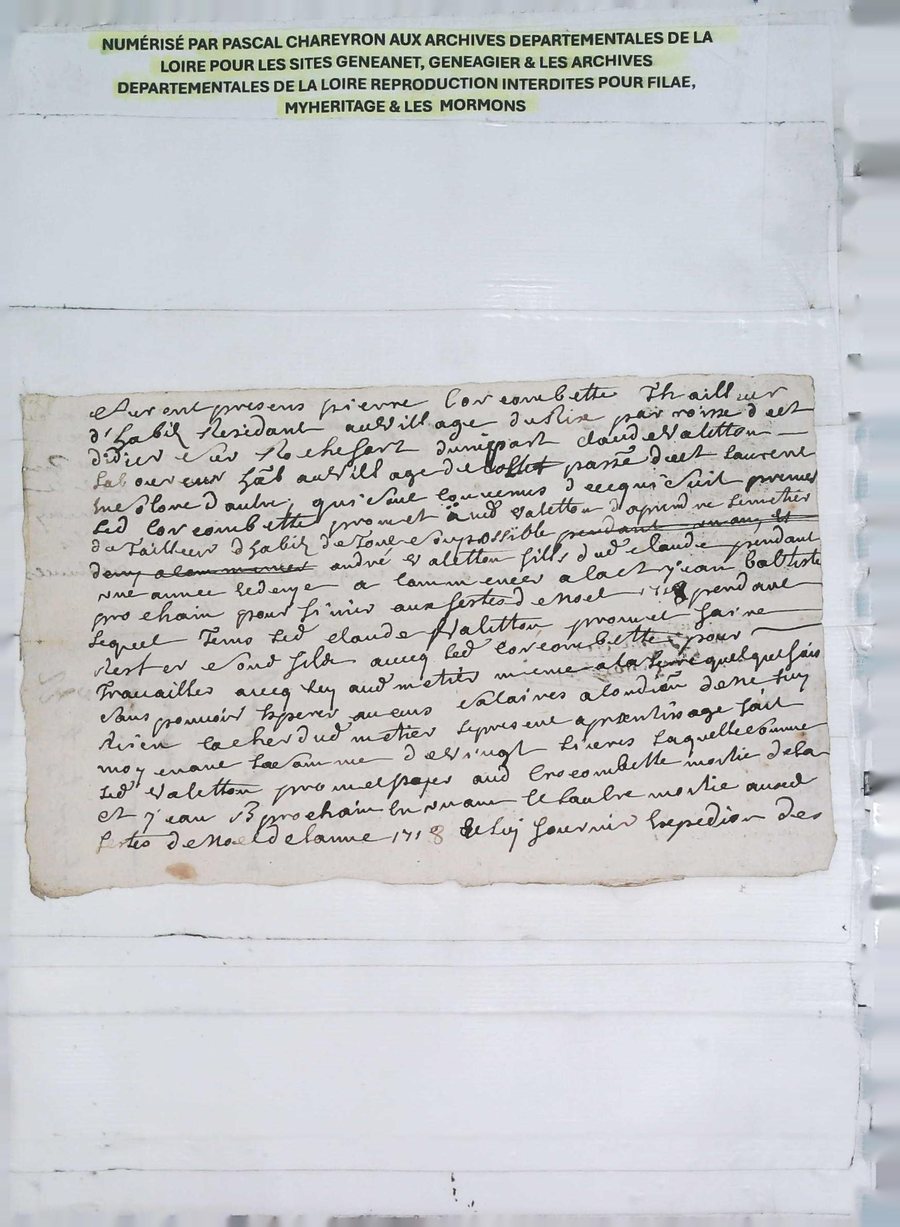 NUMÉRISÉ PAR PASCAL CHAREYRON AUX ARCHIVES DEPARTEMENTALES DE LA
LOIRE POUR LES SITES GENEANET, GENEAGIER & LES ARCHIVES
DEPARTEMENTALES DE LA LOIRE REPRODUCTION INTERDITES POUR FILAE,
MYHERITAGE & LES MORMONS
furent presens pierre Corcombette Thailleur
d'habit Residant au village du Rix parroisse de st
didier sur Rochefort dunepart claude Valetton
Laboureur hab au village de passé de st Laurent
d'autre qui sont convenus de ce qui suit premier
led Corcombette promet aud Valetton d'aprendre le metier
de Tailleur d'habit de Tout son possible pendant
andré Valetton fills dud claude pendant
une année a commencer a la st jean baptiste
prochain pour finir aux festes de noel 1718 pendant
lequel Tems led claude Valetton promet faire
Rester son fils avecq led corcombette pour
Travailler avecq luy aud metier mieme a la quelquefois
sans pouvoir esperer aucuns salaires a condition de ne luy
Rien cacher dud metier le present aprentissage fait
moyenant la somme de vingt livres laquelle somme
led Valetton promet payer aud Crocombette moitie de la
st jean prochain venant et l'autre moitie ausd
festes de noel de lanne 1718 et luy fournir expedion des